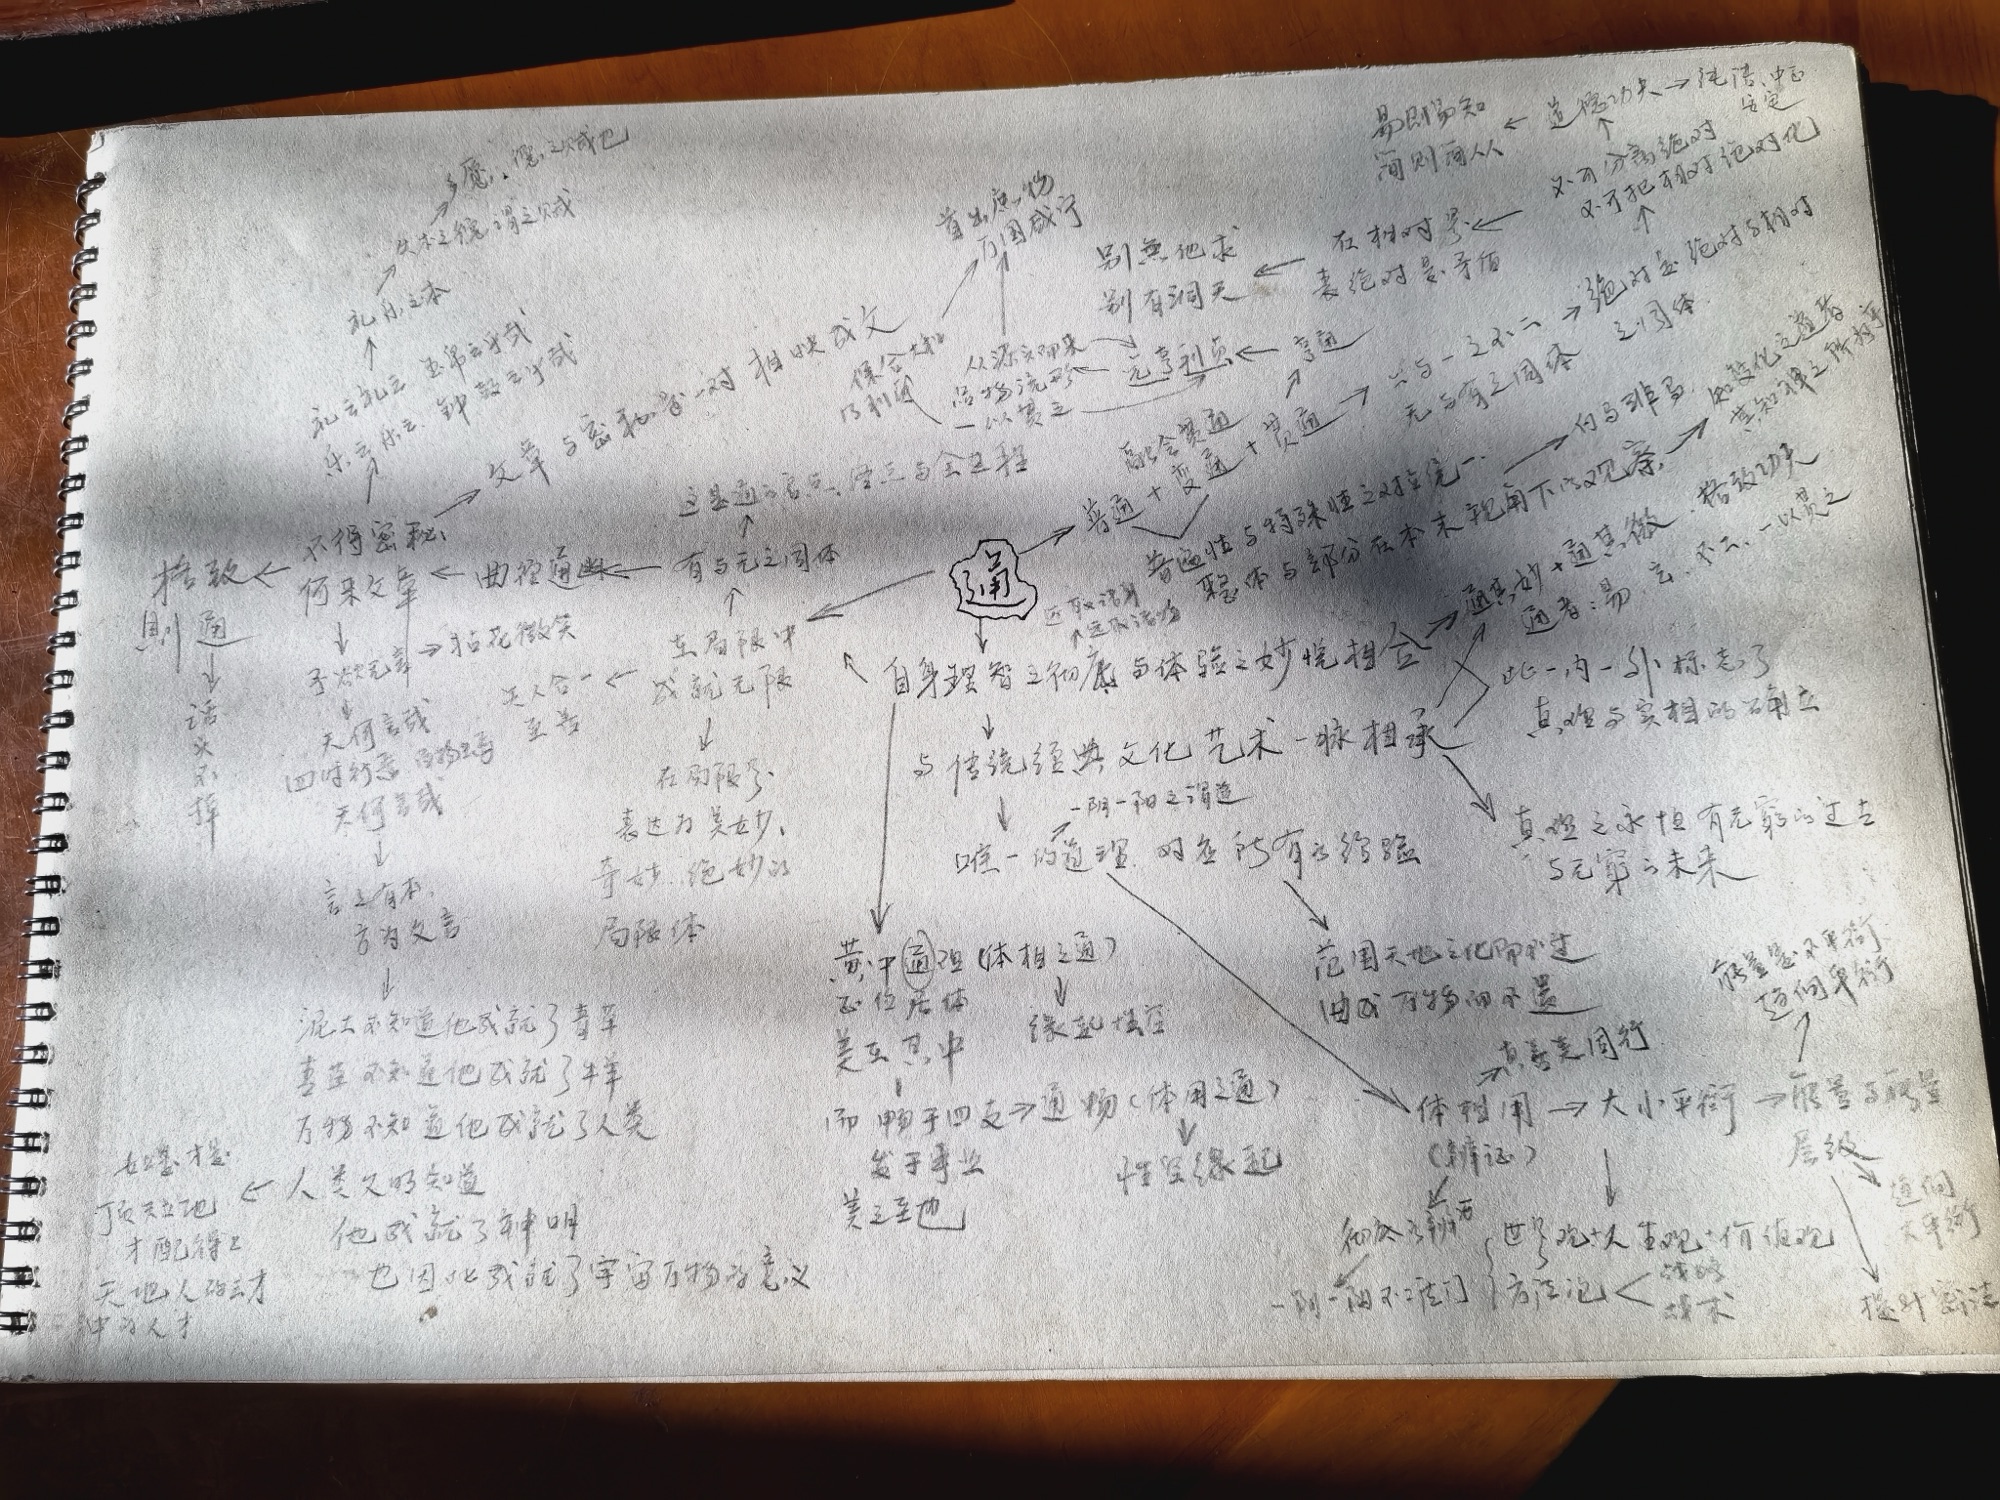 德之贼也
失本之德谓之贼
礼乐之本
礼云礼云 玉帛云乎哉
乐云乐云 钟鼓云乎哉
文章与密秘 是一对相映成文
不得密秘
何来文章
格致
则通
话头不掉
曲径通幽
有与无之同体
这是通之起点、终点与全过程
在局限中
成就无限
天人合一
至善
在局限了
表达为美妙、
奇妙、绝妙的
局限体
予欲无言
拈花微笑
天何言哉
四时行焉 百物生焉
天何言哉
言之有本,
方为文言
泥土不知道他成就了青草
青草不知道他成就了牛羊
万物不知道他成就了人类
人类又明知道
他成就了神明
也因此成就了宇宙万物的意义
如是才是
顶天立地
才配得上
天地人的三才
中的人才
首出庶物
万国咸宁
保合太和
乃利贞
品物流形
一以贯之
元亨利贞
亨通
别无他求
别有洞天
在相对里
表绝对是矛盾
易则易知
简则简从
道德功夫
纯洁、中正
安定
不可分离绝对
不可把相对绝对化
融会贯通
普通+变通+贯通
一之不二
无与有之同体
绝对是绝对与相对
之同体
普遍性与特殊性之对立统一
白马非马
整体与部分在本末视角下的观察
知变化之道者
其知神之所为乎
通
近取诸身
远取诸物
自身理智之彻底与体验之妙悦相合
通其妙+通其微
格致功夫
通者:易、玄、不二、一以贯之
此一内一外标志了
真理与实相的确立
与传统经典文化艺术一脉相承
真理之永恒有无穷的过去
与无穷的未来
一阴一阳之谓道
唯一的道理 对应所有的经验
范围天地之化而不过
曲成万物而不遗
黄中通理(体相之通)
正位居体
美在其中
缘起性空
而畅于四支→通畅(体用之通)
发于事业
美之至也
性空缘起
真善美同行
体相用
(辩证)
大小平衡
能量与能量
层级
能量是不平衡
趋向平衡
趋向
大平衡
彻底之辩证
一阴一阳不二法门
世界观+人生观+价值观
方法论
战略
战术